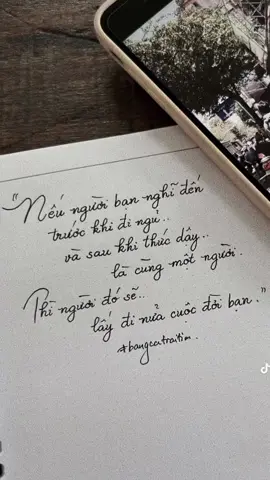 "Nếu người bạn nghĩ đến
trước khi đi ngủ..
và sau khi thức dậy..
là cùng một người.
Thì người đó sẽ..
lấy đi nửa cuộc đời bạn."
#bangcatraitim.